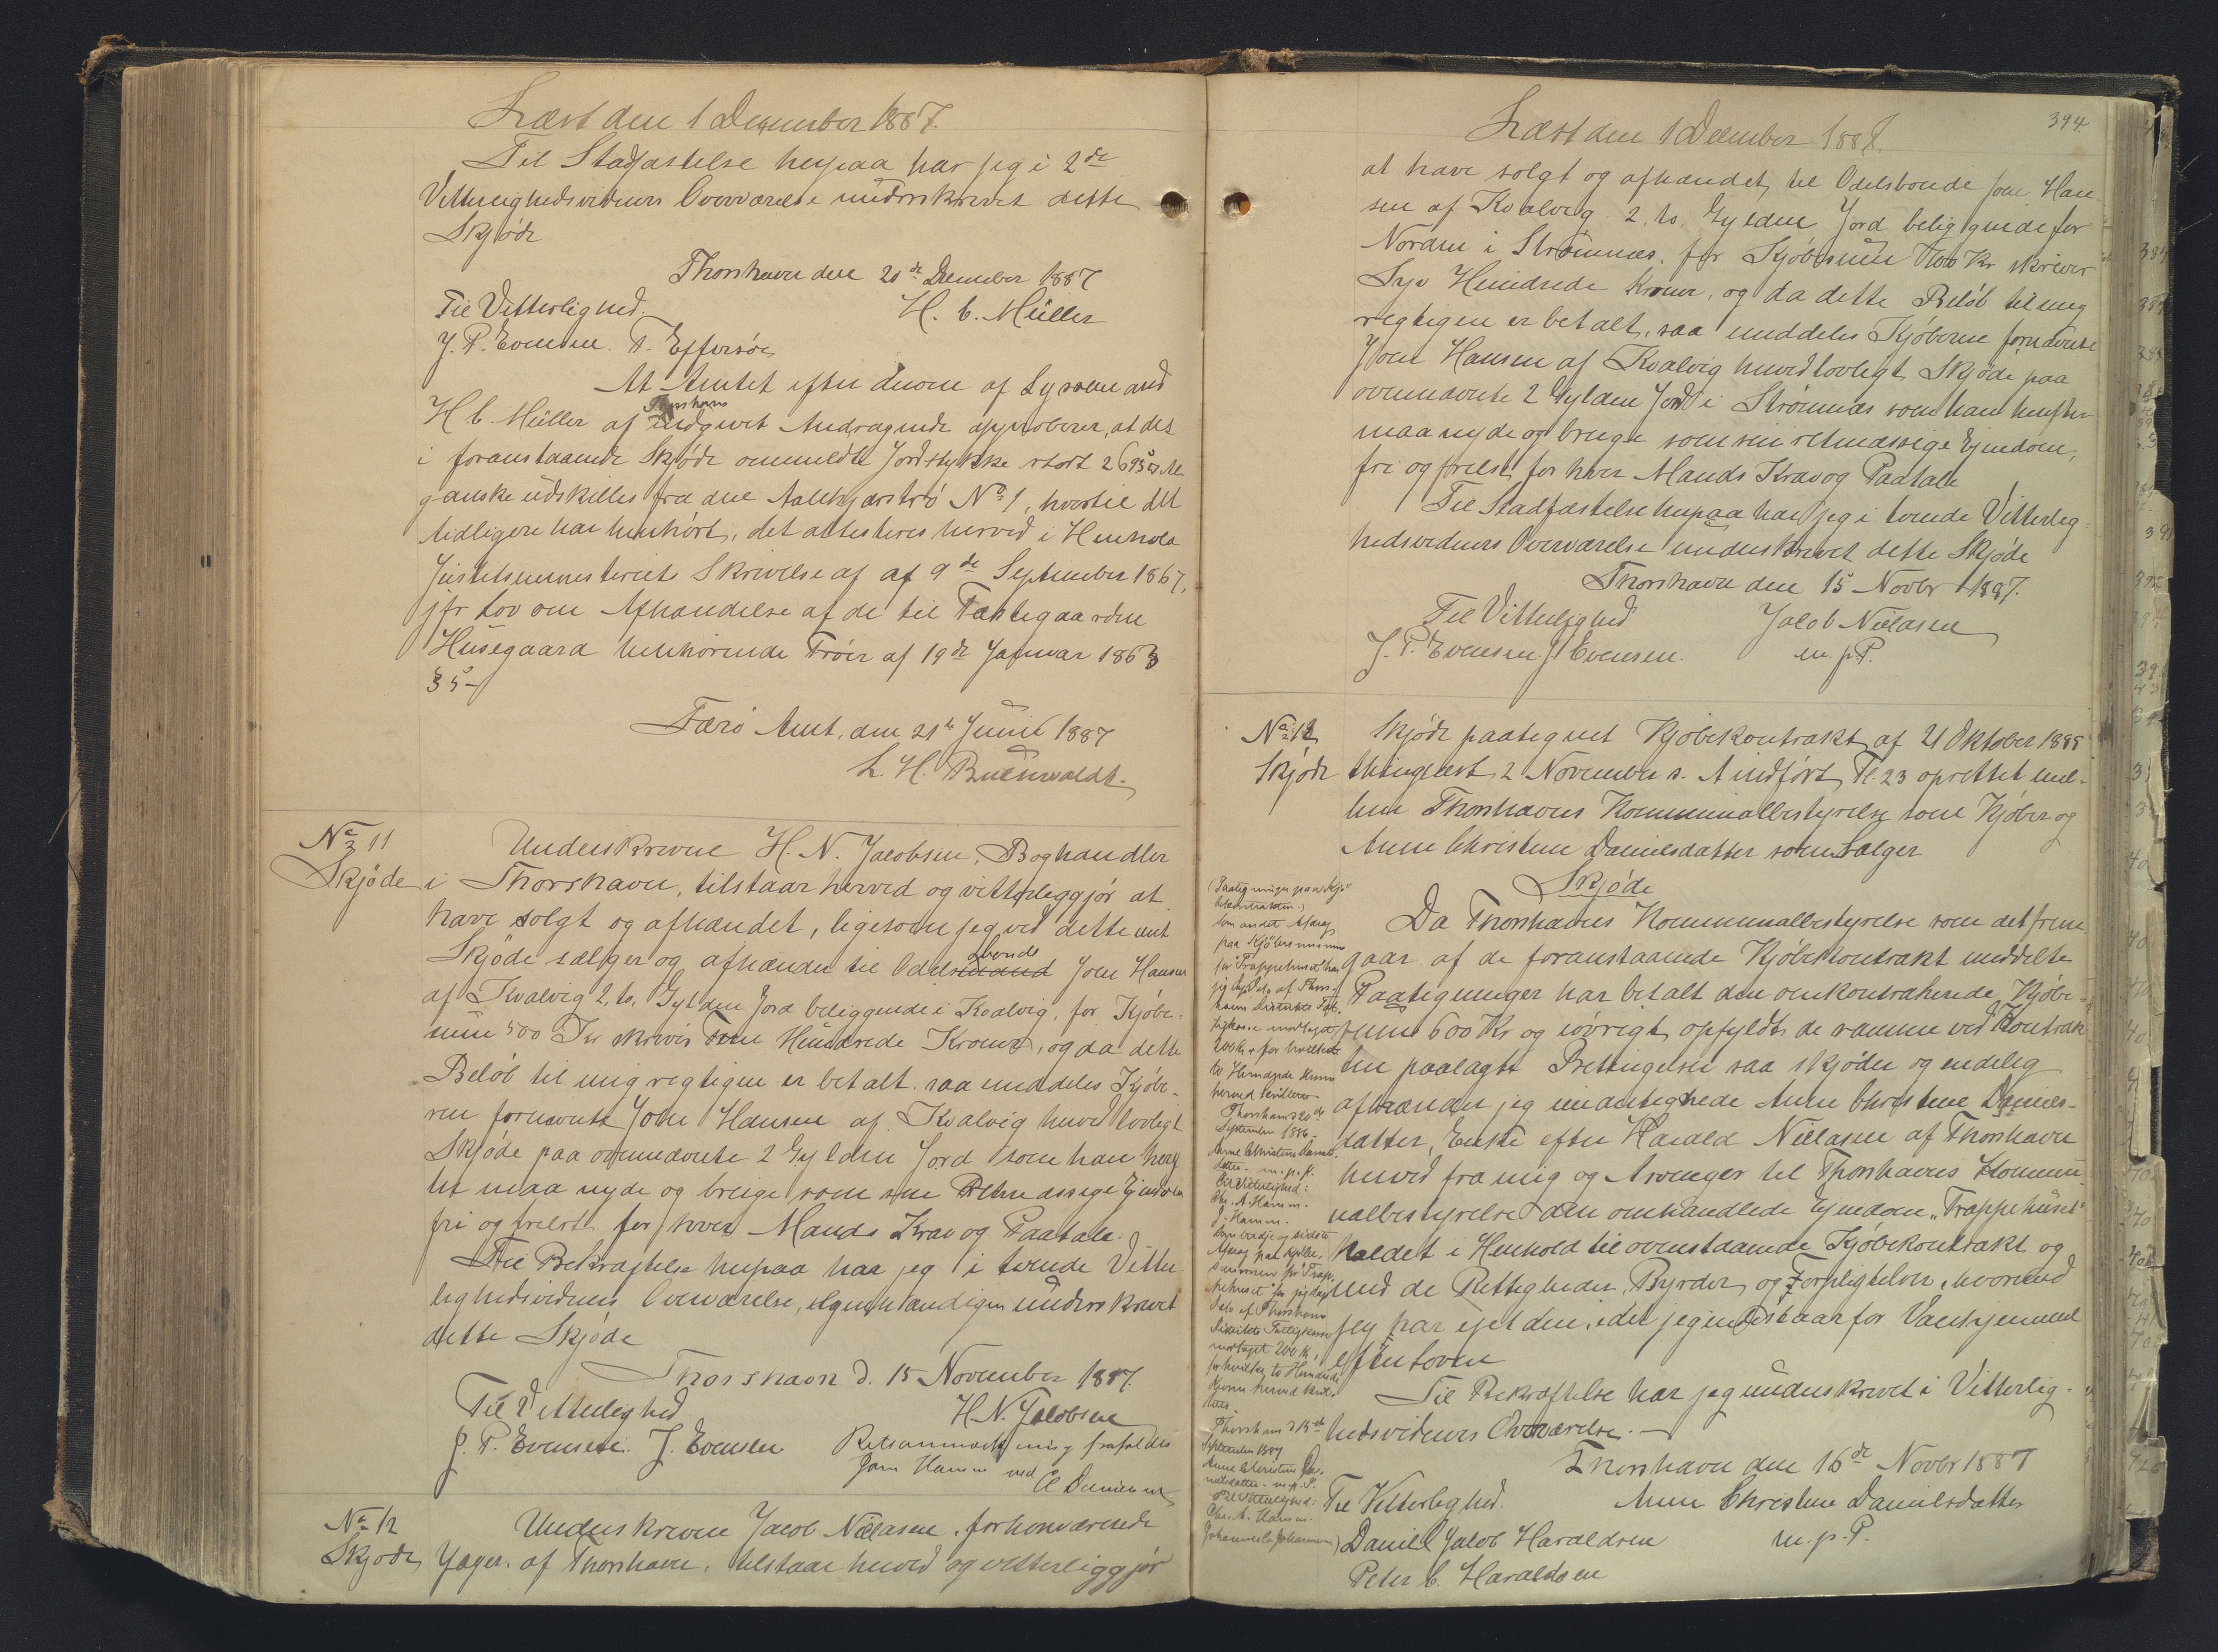 Læst den 1 December 1887.
Til Stadfæstelse herpaa har jeg i 2de
Vitterlighedsvidners Overværelse underskrevet dette
Skjøde
Thorshavn den 20de December 1887
Til Vitterlighed. H. C. Müller
J. P. Evensen. F. Effersøe
At Amtet efter derom af Sysselmand
H C. Müller af Thorshavn indgivet Andragende approberer, at det
i foranstaaende Skjøde ommeldte Jordstykke stort 2695 □ Al.
ganske udskilles fra den Aalekjærstrø No 1, hvortil det
tidligere har henhørt, det attesteres herved i Henhold
Justitsministeriets Skrivelse af af 9de September 1867,
jfr Lov om Afhændelse af de til Fæstegaarden
Husegaard henhørende Trøer af 19de Januar 1863
§ 5-
Færø Amt, den 21de Juni 1887
L. H. Buchwaldt.
No 11 Underskrevne H. N. Jacobsen, Boghandler
Skjøde i Thorshavn, tilstaar herved og vitterleggjør at
have solgt og afhændet, ligesom jeg ved dette mit
Skjøde sælger og afhænder til Odelsbonde Joen Hansen
af Kvalvig 2, to, Gylden Jord beliggende i Kvalvig, for Kjøbe-
sum 500 Kr skriver Fem Hundrede Kroner, og da dette
Beløb til mig rigtigen er betalt. saa meddeles Kjøbe-
ren fornævnte Joen Hansen af Kvalvig herved lovligt
Skjøde paa ovennævnte 2 Gylden Jord som han heref
ter maa nyde og bruge som sin Retmæssige Ejendom
fri og frelst for hver Mands Krav og Paatale.
Til Bekræftelse herpaa har jeg i tvende Vitter
lighedsvidners Overværelse, egenhændigen underskrevet
dette Skjøde
Thorshavn d. 15 November 1887.
Til Vitterlighed H. N. Jacobsen
J. P. Evensen. J. Evensen Retsanmærkning frafaldes
Joen Hansen ved
C Danielsen
No 12 Underskrevne Jacob Nielasen, forhenværende
Skjøde Jager. af Thorshavn. tilstaar herved og vitterliggjør
394.
Læst den 1 December 1887.
at have solgt og afhændet, til Odelsbonde Joen Han
sen af Kvalvig 2. to. Gylden Jord beliggende for
Norden i Strømnæs. for Kjøbesum 700 Kr skriver
Syv Hundrede Kroner, og da dette Beløb til mig
rigtigen er betalt, saa meddeles Kjøberen fornævnte
Joen Hansen af Kvalvig herved lovligt Skjøde paa
ovennævnte 2 Gylden Jord i Strømnæs som han herefter
maa nyde og bruge som sin retmæssige Ejendom,
fri og frelst for hver Mands Krav og Paatale
Til Stadfæstelse herpaa har jeg i tvende Vitterlig-
hedsvidners Overværelse underskrevet dette Skjøde
Thorshavn den 15 Novbr 1887.
Til Vitterlighed Jacob Nielasen
J. P. Evensen J Evensen. m. p. P.
No 12 Skjøde paategnet Kjøbekontrakt af 21 Oktober 1885
Skjøde thinglæst 2 November s. A indført Fl. 23 oprettet mel-
lem Thorshavns Kommunalbestyrelse som Kjøber og
Anne Christine Danielsdatter som Sælger
Skjøde
Da Thorshavns Kommunalbestyrelse som det frem
gaar af de foranstaaende Kjøbekontrakt meddelte
Paategninger har betalt den omkontraherede Kjøbe-
sum 600 Kr og iøvrigt opfyldt de samme ved Kontrak
ten paalagte Betingelser saa skjøder og endelig
afhænder jeg undertegnede Anne Christine Daniels-
datter, Enke efter Harald Nielasen af Thorshavn
herved fra mig og Arvinger til Thorshavns Kommu
nalbestyrelse den omhandlede Ejendom "Trappehuset"
kaldet i Henhold til ovenstaaende Kjøbekontrakt og
med de Rettigheder, Byrder og Forpligtelser, hvormed
jeg har ejet den, idet jeg indestaar for Vanhjemmel
efter Loven
Til Bekræftelse har jeg underskrevet i Vitterlig-
hedsvidners Overværelse.
Thorshavn den 16de Novbr 1887
Til Vitterlighed. Anne Christine Danielsdatter
Daniel Jacob Haraldsen m. p. P.
Peter C. Haraldsen
(Paategninger paa Kjø-
bekontrakten.)
Som andet Afdrag
paa Kjøbesummen
for Trappehuset har
jeg Dags Dato af Thors-
havns Distrikts Fat-
tigkasse modtaget
200 Kr for hvilke
to Hundrede Kroner
herved kvitteres
Thorshavn d 20de
September 1886.
Anne Christine Daniels-
datter m. p. P.
Til Vitterlighed:
Chr. A. Hamm.
J. Hamm.
Som tredje og sidste
Afdrag paa Kjøbe-
summen for Trap-
pehuset har jeg Dags
Dato af Thorshavns
Distrikts Fattigkasse
modtaget 200 Kr,
for hvilke to Hundrede
Kroner herved kvit-
teres.
Thorshavn d 15de
September 1887
Anne Christine Da-
nielsdatter m. p. P.
Til Vitterlighed:
Chr. A. Hamm.